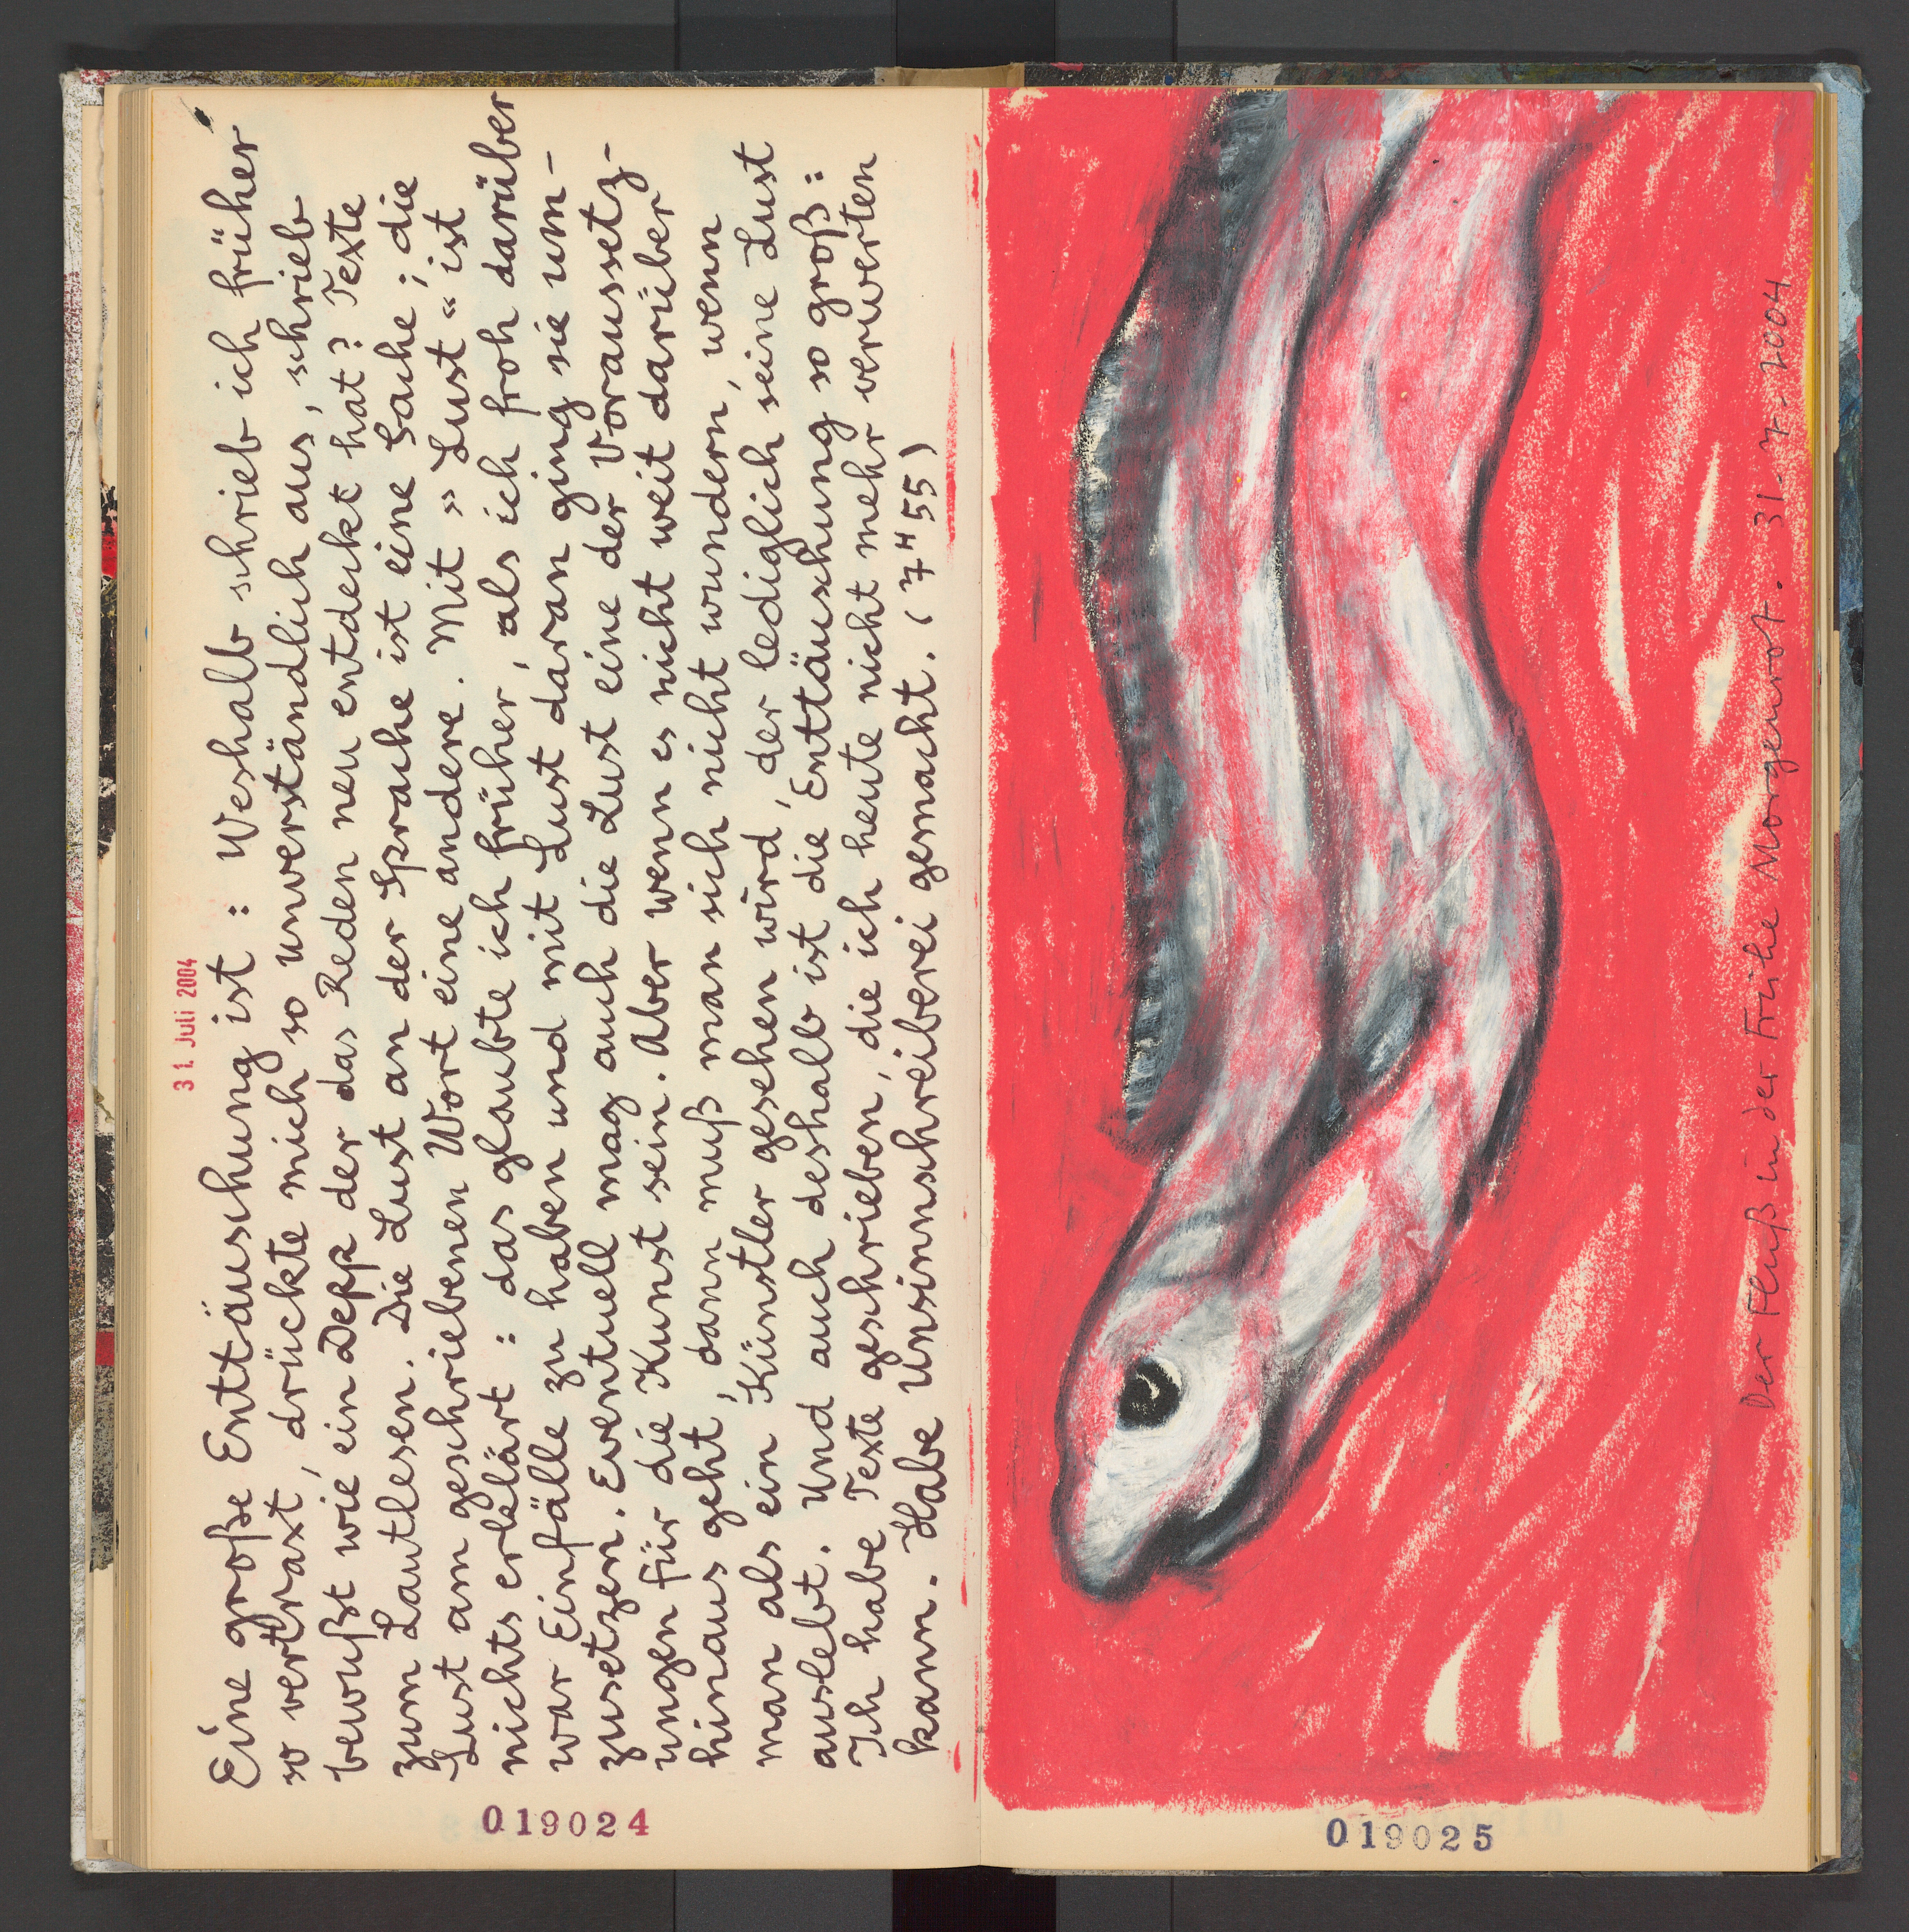 31. Juli 2004
Eine große Enttäuschung ist : Weshalb schrieb ich früher
so vertraxt, drückte mich so unverständlich aus, schrieb
bewußt wie ein Depp der das Reden neu entdeckt hat? Texte
zum Lautlesen. Die Lust an der Sprache ist eine Sache ; die
Lust am geschriebenen Wort eine andere. Mit » Lust « ist
nichts erklärt : das glaubte ich früher, als ich froh darüber
war Einfälle zu haben und mit Lust daran ging sie um-
zusetzen. Eventuell mag auch die Lust eine der Voraussetz-
ungen für die Kunst sein. Aber wenn es nicht weit darüber
hinaus geht, dann muß man sich nicht wundern, wenn
man als ein Künstler gesehen wird, der lediglich seine Lust
auslebt. Und auch deshalb ist die Enttäuschung so groß:
Ich habe Texte geschrieben, die ich heute nicht mehr verwerten
kann. Habe Unsinnschreiberei gemacht. (7 H 55)
019024
Der Fluß in der Frühe Morgenrot. 31-7-2004
019025